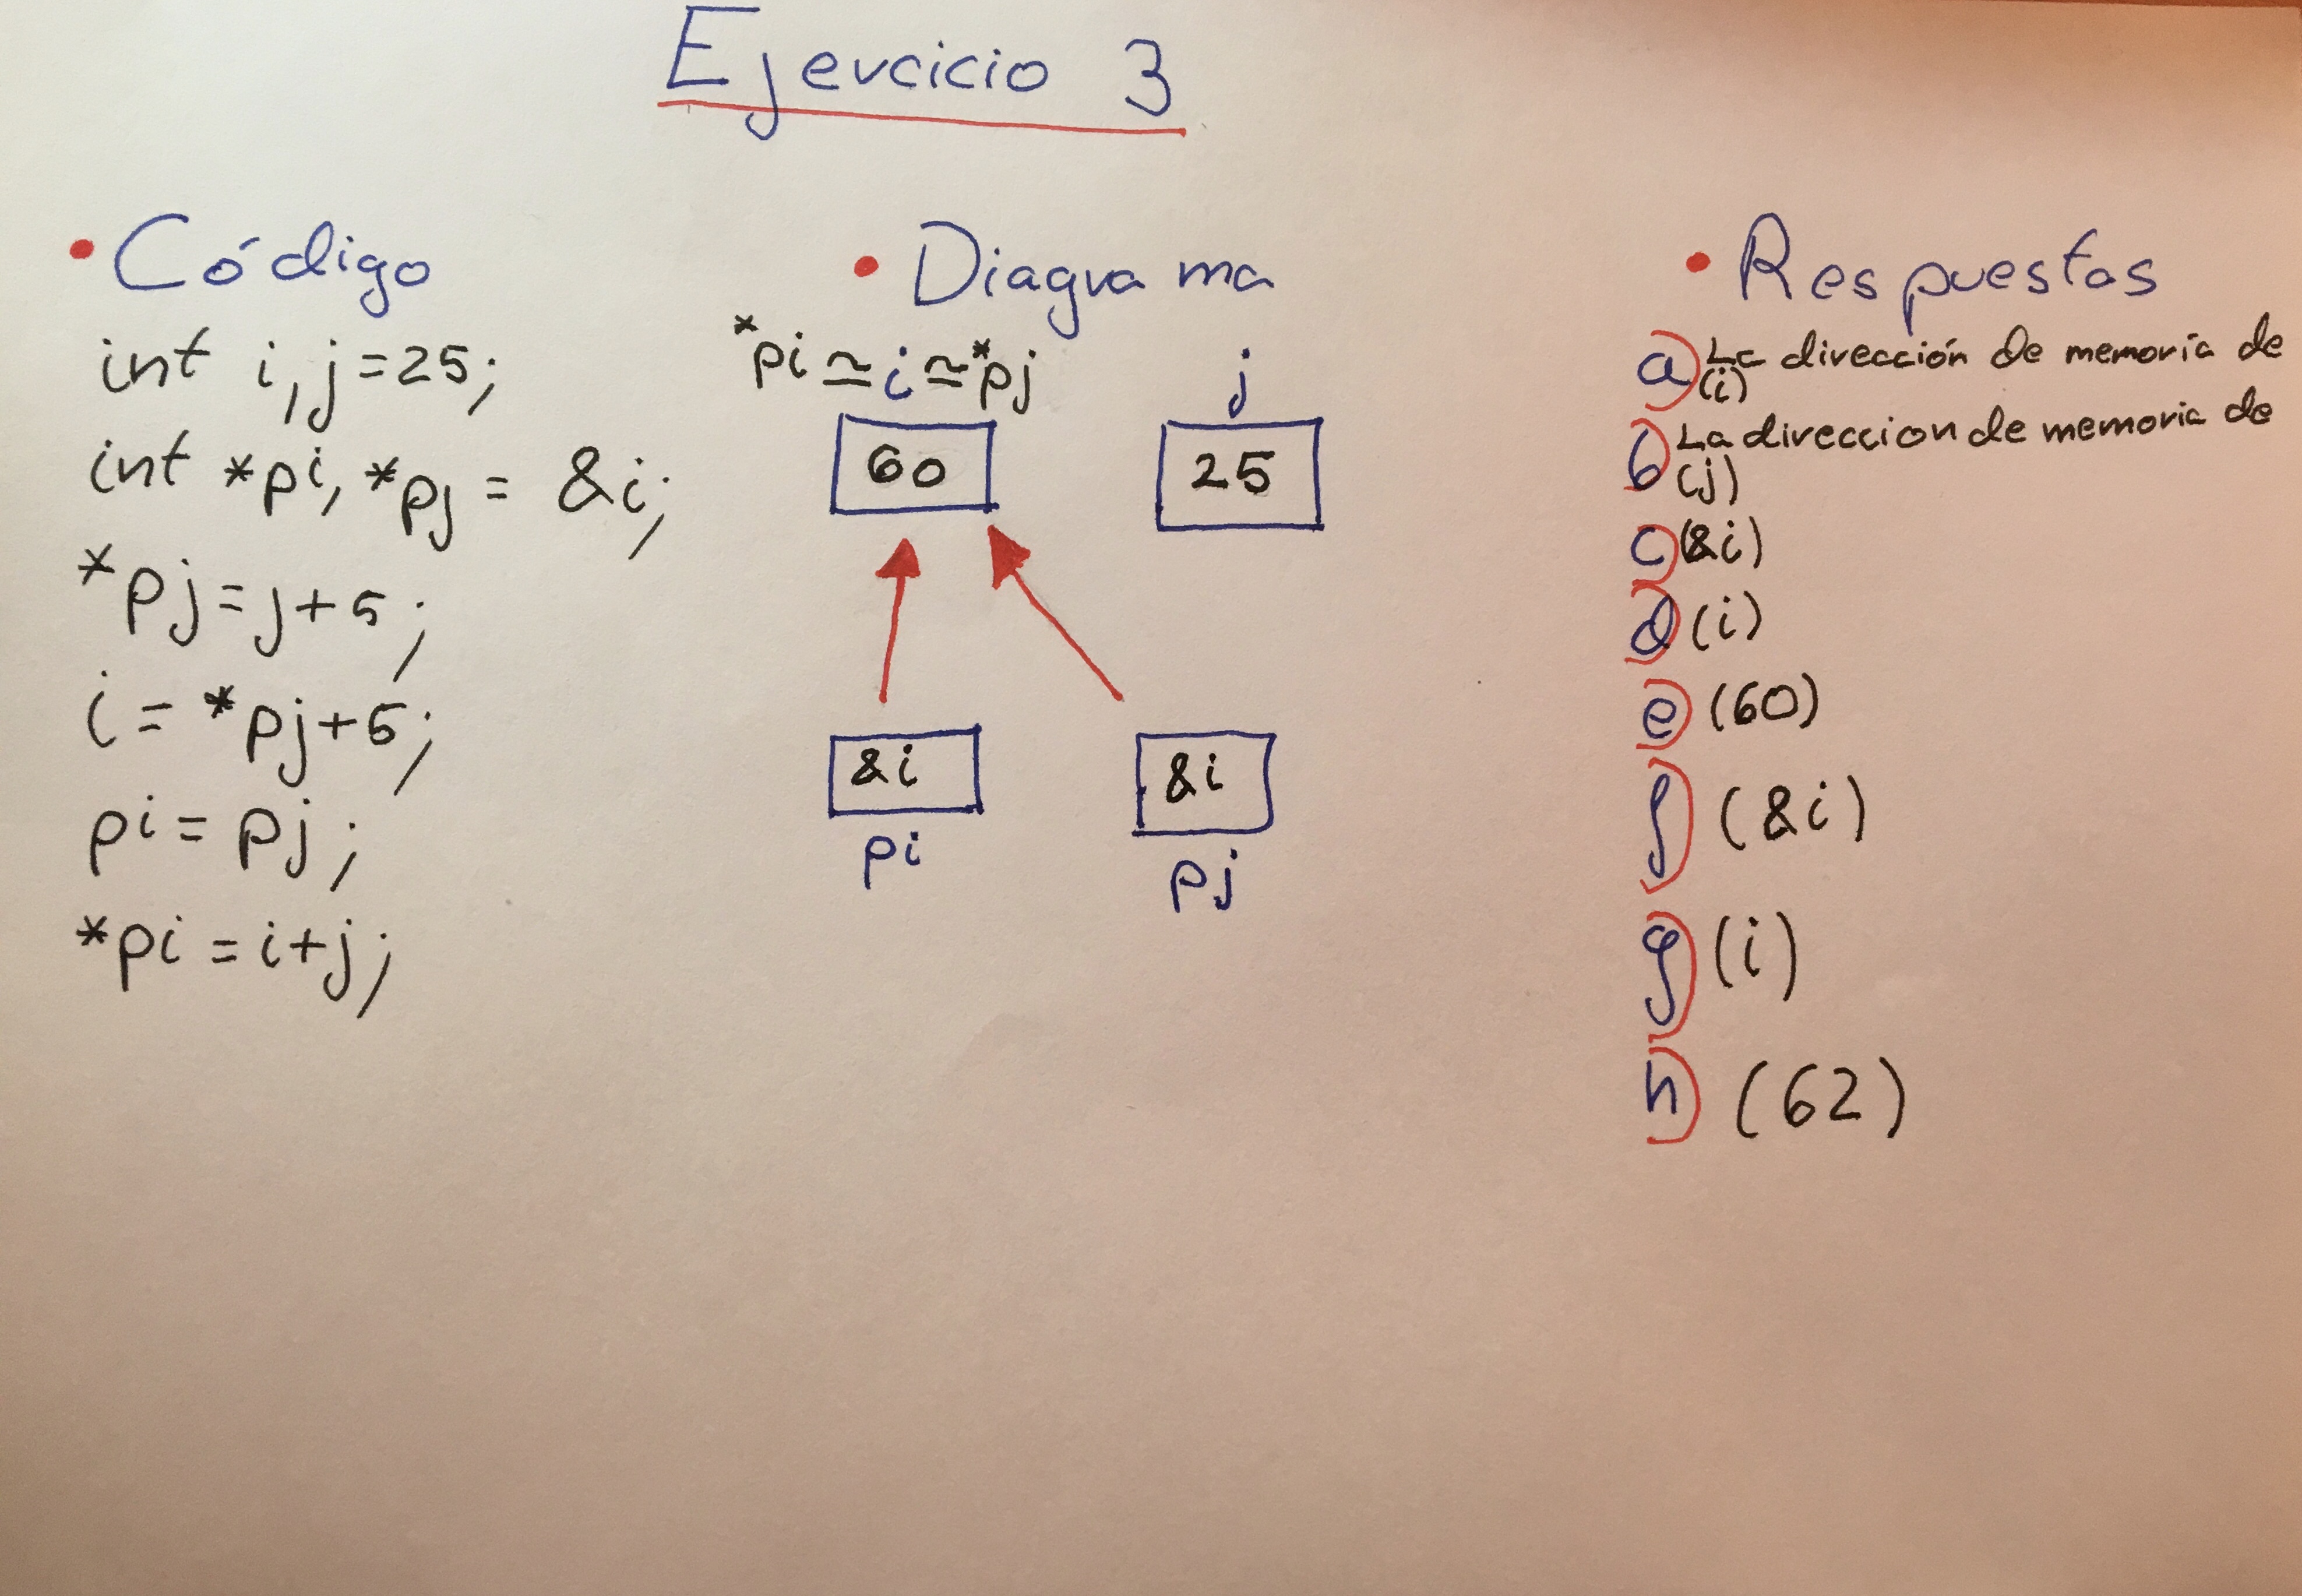 Ejercicio 3
• Código
int i,j=25;
int *pi, *pj = &i;
*pj=j+5;
i = *pj+5;
pi = pj;
*pi = i+j;
• Diagrama
*pi ≃ i ≃ *pj
j
60
25
&i
&i
pi
pj
• Respuestas
a) La dirección de memoria de
(i)
b) La direccion de memoria de
(j)
c) (&i)
d) (i)
e) (60)
f) (&i)
g) (i)
h) (62)